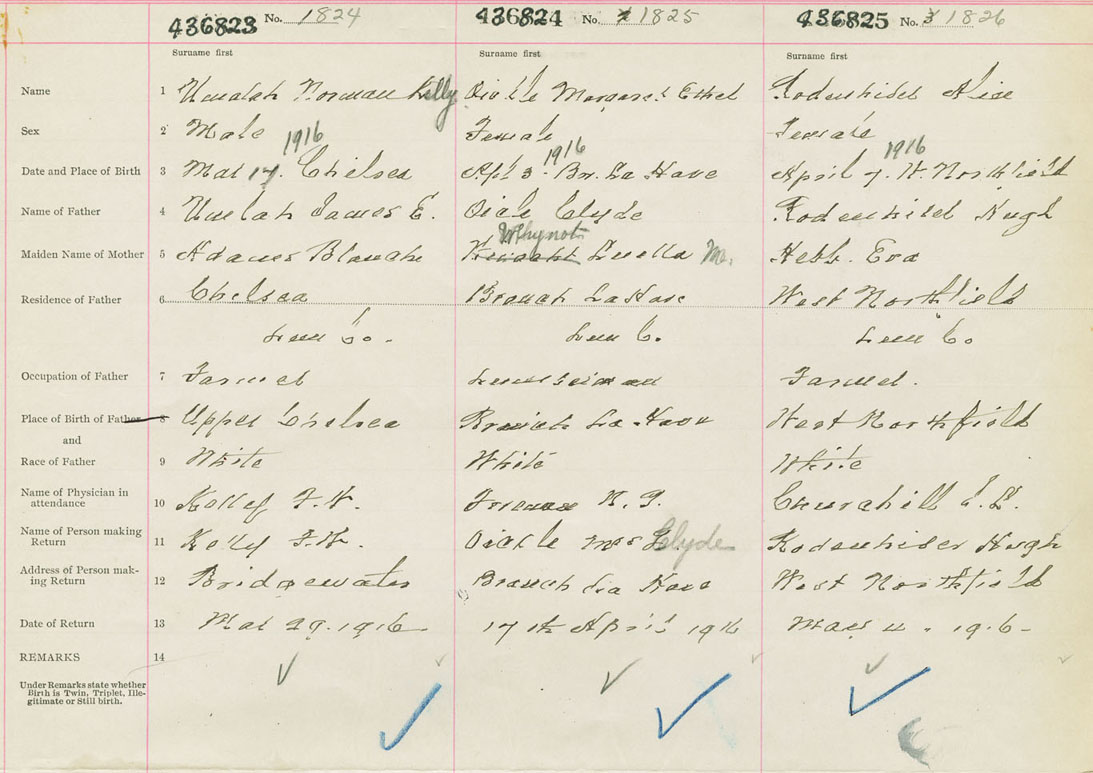 436823 No. 1824 436824 No. 1825 436825 No. 1826
Surname first Surname first Surname first
Name 1 Norman Kelly Margaret Ethel Rodenhiser
Sex 2 Male Female Female
1916 1916 1916
Date and Place of Birth 3 Mar 17. Chelsea Apl 3. Br. La Have April 7. W. Northfield
Name of Father 4 James E. Clyde Rodenhiser Hugh
Whynot
Maiden Name of Mother 5 Blanch Luella M. Hebb. Eva
Residence of Father 6 Chelsea Branch La Have West Northfield
Lun Co. Lun C. Lun Co
Occupation of Father 7 Farmer Lumberman Farmer.
Place of Birth of Father 8 Upper Chelsea Branch La Have West Northfield
and
Race of Father 9 White White White
Name of Physician in
attendance 10 F. W. Churchill
Name of Person making
Return 11 F. W. Oickle Mrs Clyde Rodenhiser Hugh
Address of Person mak-
ing Return 12 Bridgewater Branch La Have West Northfield
Date of Return 13 Mar 29. 1916 17th April 1916 May 4. 1916
REMARKS 14
Under Remarks state whether
Birth is Twin, Triplet, Ille-
gitimate or Still birth.